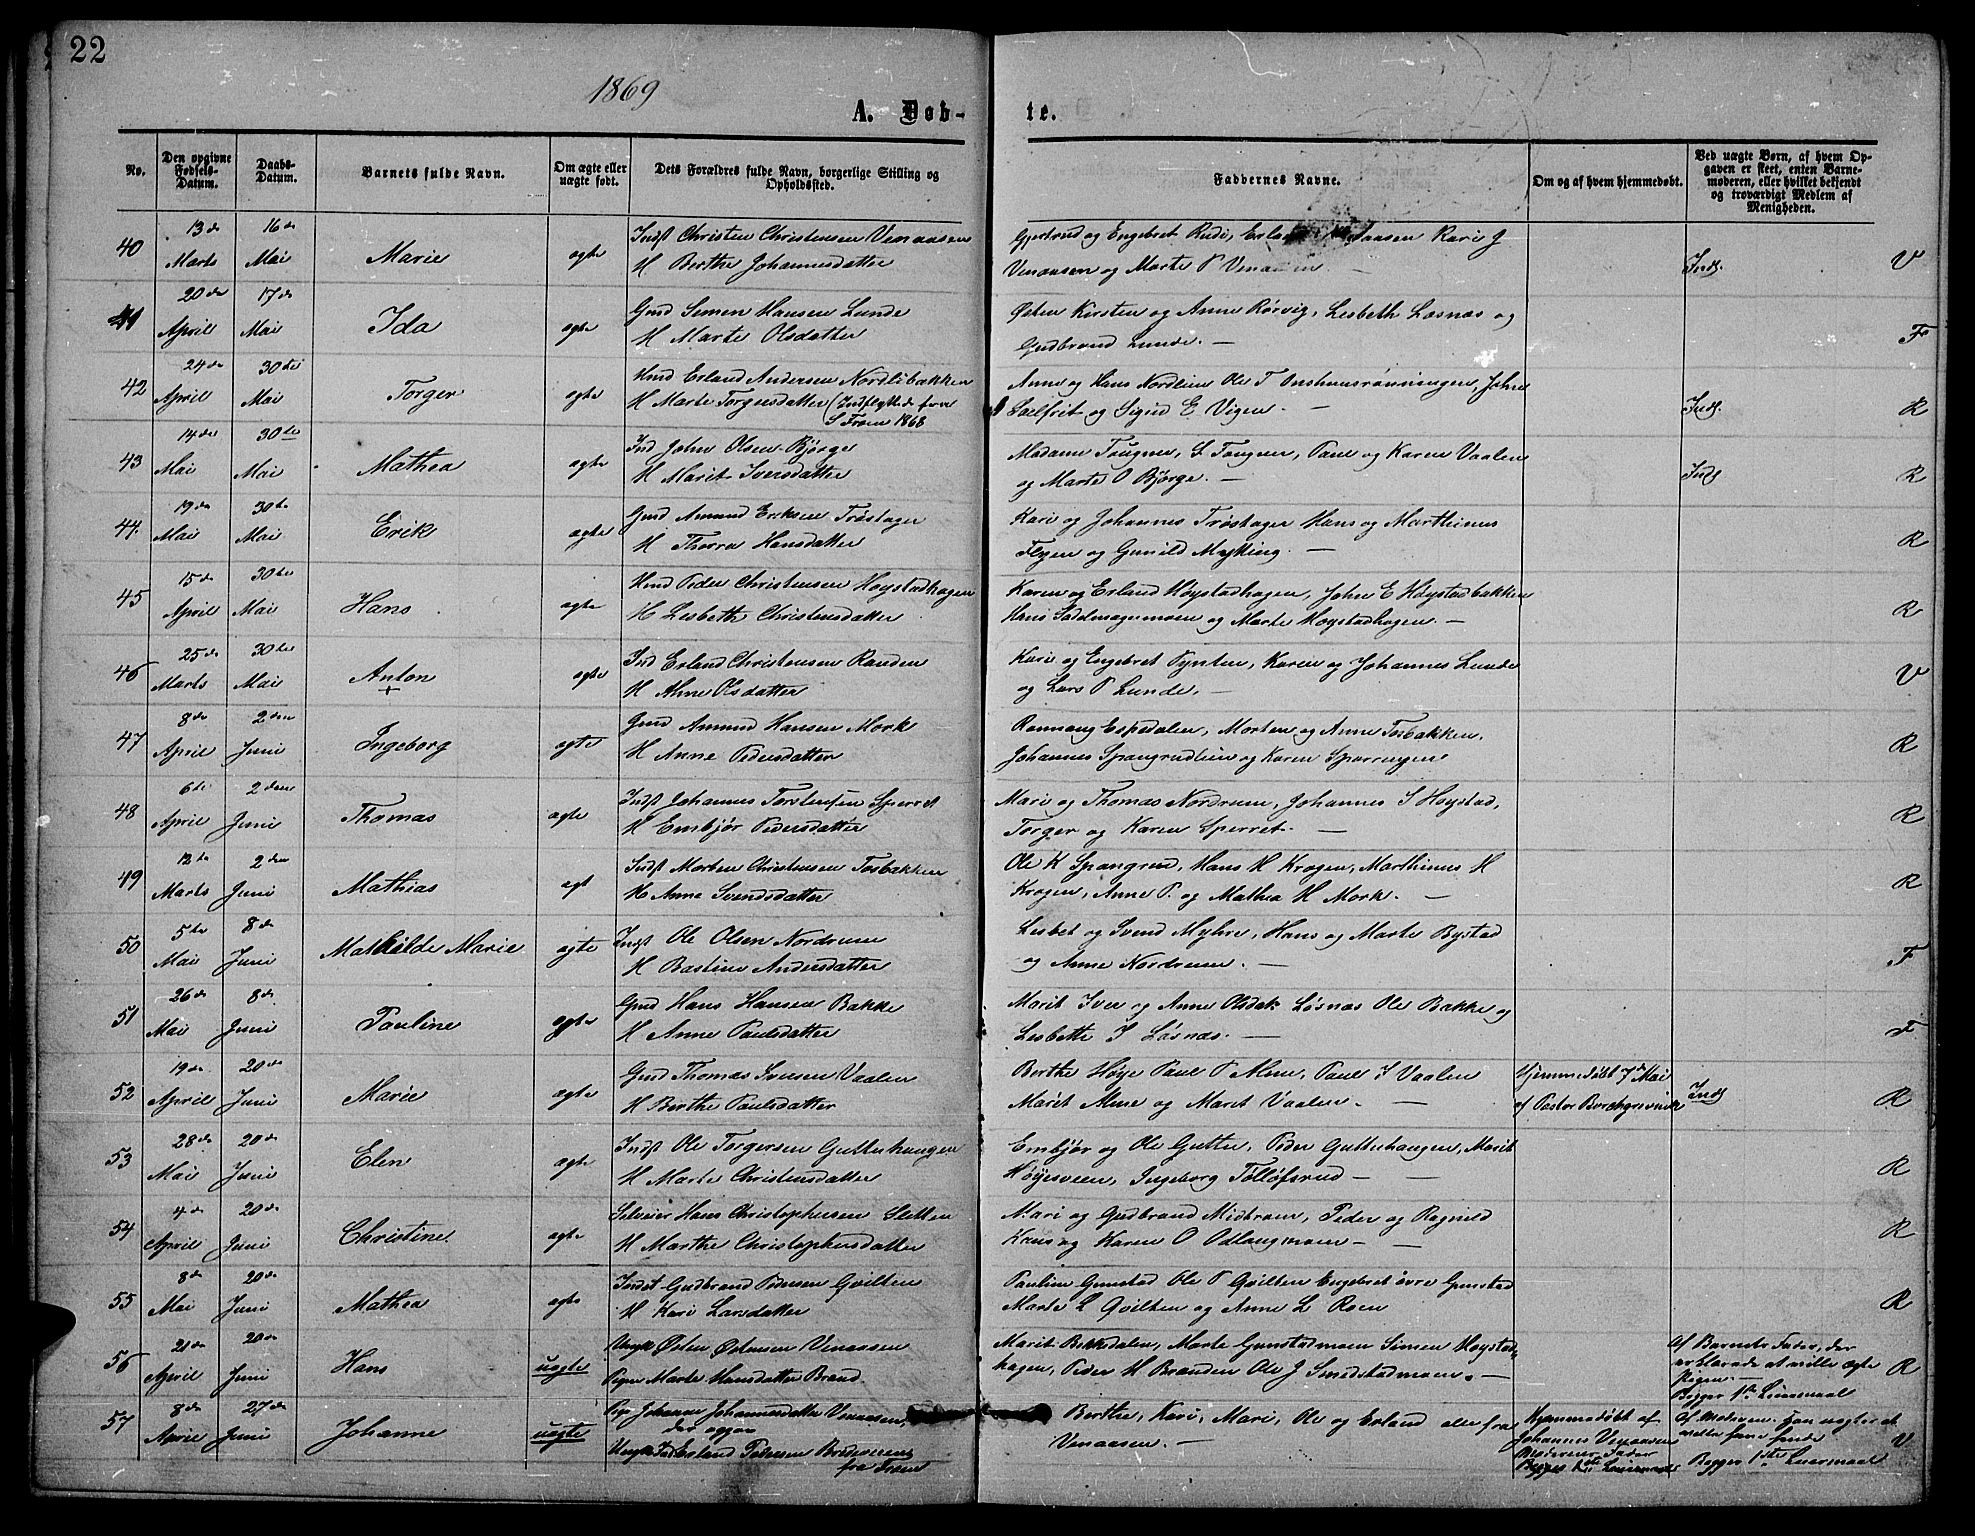 22
1869
A. Døb-
te.
No.
Den opgivne Fødsels-Datum.
Daabs-Datum.
Barnets fulde Navn.
Om ægte eller uægte født.
Dets Forældres fulde Navn, borgerlige Stilling og Opholdssted.
Faddernes Navne.
Om og af hvem hjemmedøbt.
Ved uægte Børn, af hvem Opgaven er skeet, enten Barnemoderen, eller hvilket bekjendt og troværdigt Medlem af Menigheden.
40 13de Marts 16de Mai Marie ægte Indst Christen Christensen Venaasen
H Berthe Johannesdatter
Gjertrud og Engebret Rudi, Kari J
Venaasen og Marte P Venaasen — Inds. V
41 20de April 17de Mai Ida ægte Gmd Simen Hansen Lunde
H Marte Olsdatter
Østen Kirsten og Anne Rørvig, Lesbeth Løsnæs og
Gudbrand Lunde. — F
42 24de April 30te Mai Torger ægte Hmd Erland Andersen Nordlibakken
H Marte Torgersdatter (Indflyttede fra
S Froen 1868
Anne og Hans Nordlien Ole T Onshuusrønningen, John
og Sigrid E Vigen. — Inds. R
43 14de Mai 30te Mai Mathea ægte Ind John Olsen Bjørge
H Marit Iversdatter
Madame Taugøen, S Taugøen, Paul og Karen Vaalen
og Marte O Bjørge. — Inds R
44. 19de Mai 30te Mai Erik ægte Gmd Amund Eriksen Trøstager
H Thorra Hansdatter
Kari og Johannes Trøstager Hans og Marthinus
Flyen og Gunild Myking. — R
45 15de April 30te Mai Hans ægte Hmd Peder Christensen Høystadhagen
H Lesbeth Christensdatter
Karen og Erland Høystadhagen, John E Høystadbakken
Hans og Marte Høystadhagen. — R
46 25de Marts 30te Mai Anton
+ ægte Ind Erland Christensen Randen
H Anne Olsdatter
Kari og Engebret Pynten, Karen og Johannes Lunde
og Lars P Lunde. — V
47 8de April 2den Juni Ingeborg ægte Gmd Amund Hansen Mork
H Anne Pedersdatter
Rannang Espedalen, Morten og Anne Tosbakken,
Johannes Spangrudlien og Karen R
48 6te April 2den Juni Thomas ægte Indst Johannes Torstensen Sperret
H Embjør Pedersdatter
Mari og Thomas Nordrum, Johannes S Høystad,
Torger og Karen Sperret. — R
49 12te Marts 2den Juni Mathias ægt Indst Morten Christensen Tosbakken
H Anne Svendsdatter
Ole K Spangrud, Hans H Krogen, Marthinus H
Krogen, Anne P. og Mathea H Mork. — R
50 5te Mai 8de Juni Mathilde Marie ægte Indst Ole Olsen Nordrum
H Bastine Andersdatter
Lesbet og Svend Myhre, Hans og Marte Bystad
og Anne Nordrum. — F
51 26de Mai 8de Juni Pauline ægte Gmd Hans Hansen Bakke
H Anne Paulsdatter
Marit Iver og Anne Olsdat Løsnæs Ole Bakke og
Lesbette I Løsnæs. — F
52 19de April 20de Juni Marie ægte Gmd Thomas Iversen Vaalen
H Berthe Paulsdatter
Berthe Høye Paul P Alme, Paul I Vaalen
Marit Alme og Maret Vaalen. — Hjemmedøbt 7de Mai
af Pastor Borchgrevink Inds R
53 28de Mai 20de Juni Elen ægte Indst Ole Torgersen Gutterhaugen
H Marte Christensdatter
Embjør og Ole Gutter, Peder Gutterhaugen, Marit
Høyesveen, Ingeborg Tolløfsrud — R
54 4de April 20de Juni Christine ægte Selveier Hans Christophersen Sletten
H Marthe Christophersdatter
Mari og Gudbrand Midtrom, Peder og Ragnild
Hans og Karen O Odlaugmoen — R
55 8de Mai 20de Juni Mathea ægte Indst Gudbrand Pedersen Qvilten
H Kari Larsdatter
Pauline Gunstad Ole P Qvilten Engebret øvre Gunstad
Marte L Qvilten og Anne L Roen R
56 21de April 20de Juni Hans uægte Ungk Østen Østensen Venaasen
Pigen Marte Hansdatter Brand.
Marit Bekkdalen, Marte Gunstadmoen Simen Høystad-
hagen, Peder H Branden Ole J Smedstadmoen. — Af Barnets Fader, der
erklærede at ville ægte
Pigen. —
Begges 1ste Leiermaal R
57 8de April 27de Juni Johanne uægte Pig Johanne Johannesdatter Venaasen,
der opgav
Ungk Ind Erland Pedersen
fra Froen
Berthe, Kari, Mari, Ole og Erland alle fra
Venaasen. — Hjemmedøbt af
Johannes Venaasen
Moderens Fader
Begges 1ste Leiermaal af Moderen.
Begges 1ste Leiermaal V